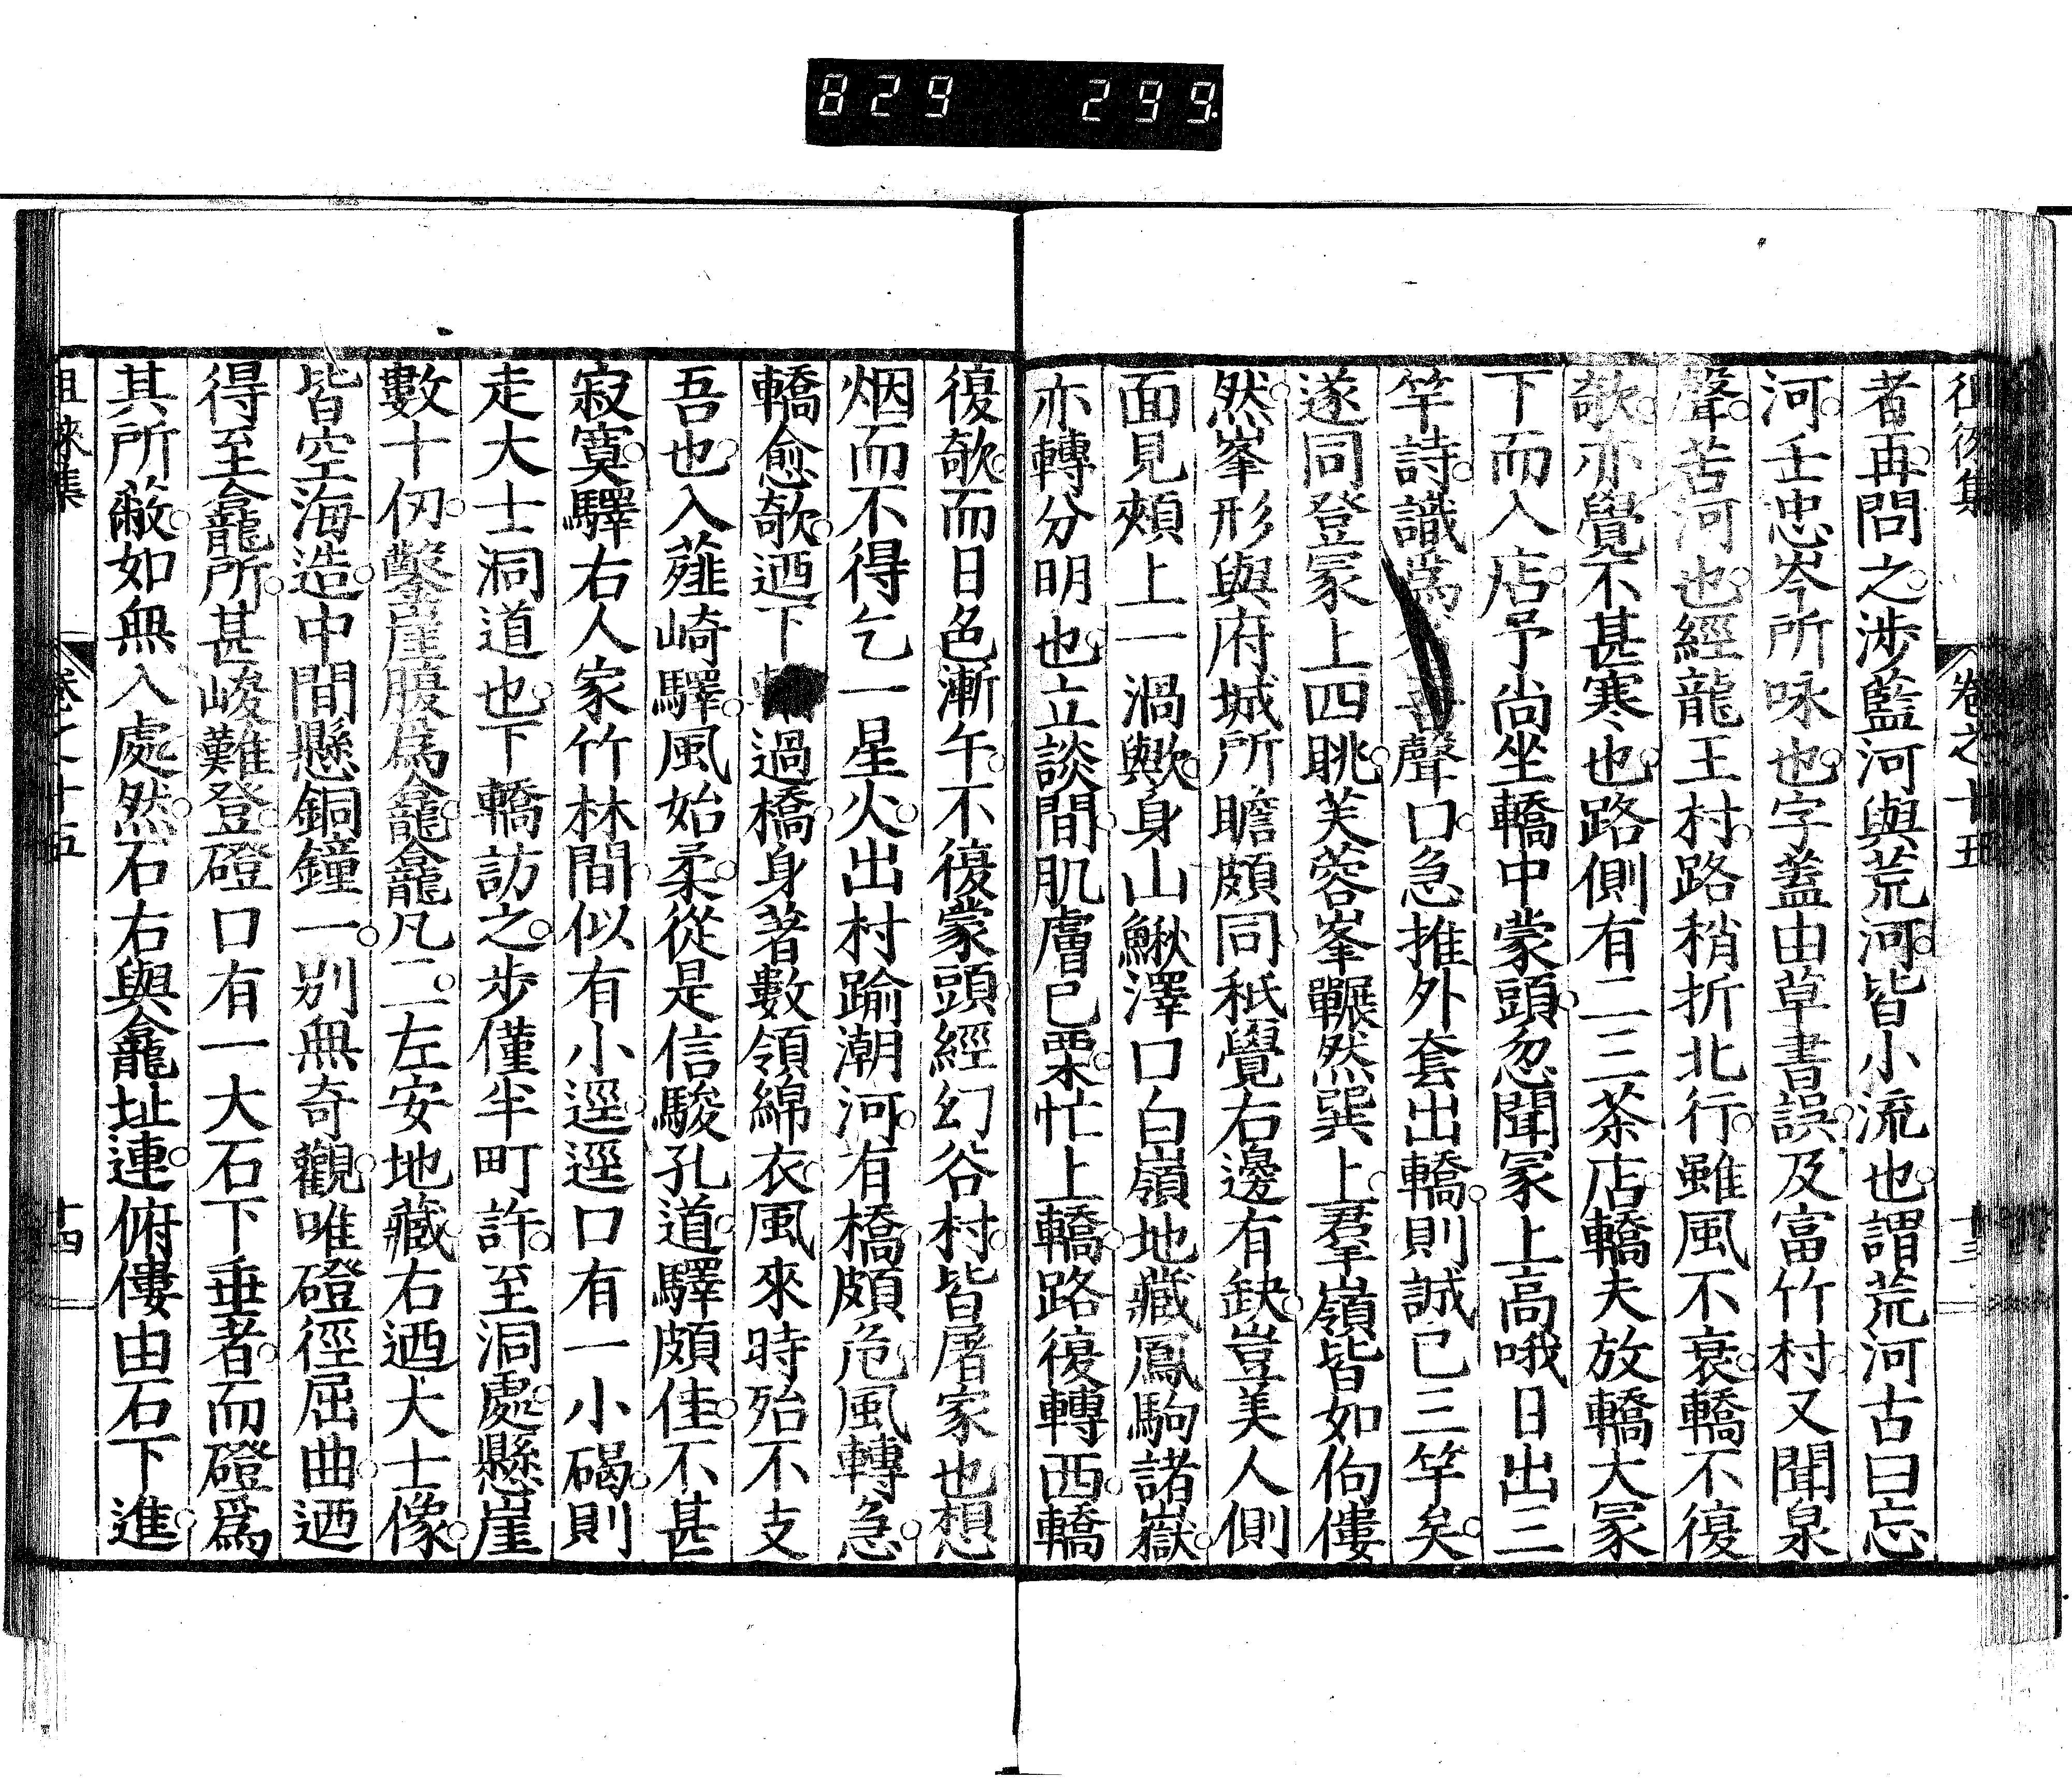 829 299
卷之十五 十三
者再問之涉藍河與荒河皆小流也謂荒河古曰忘
河壬忠岑所咏也字蓋由草書誤及富竹村又聞泉
聲苦河也經龍王村路稍折北行雖風不衰轎不復
欹亦覺不甚寒也路側有二三茶店轎夫放轎大冢
下而入店予尚坐轎中蒙頭忽聞冢上高哦日出三
竿詩識爲聲口急推外套出轎則誠已三竿矣
遂同登冢上四眺芙蓉峯冁然巽上羣嶺皆如佝僂
然峯形與府城所瞻頗同秖覺右邊有缺豈美人側
面見頰上一渦歟身山鰍澤口白嶺地藏鳳駒諸嶽
亦轉分明也立談間肌膚已栗忙上轎路復轉西轎
復欹而日色漸午不復蒙頭經幻谷村皆屠家也想
烟而不得乞一星火出村踰潮河有橋頗危風轉急
轎愈欹迺下過橋身著數領綿衣風來時殆不支
吾也入薤崎驛風始柔從是信駿孔道驛頗佳不甚
寂寞驛右人家竹林間似有小逕逕口有一小碣則
走大士洞道也下轎訪之步僅半町許至洞處懸崖
數十仞鑿崖腹爲龕龕凡二左安地藏右迺大士像
皆空海造中間懸銅鐘一別無奇觀唯磴徑屈曲迺
得至龕所甚峻難登磴口有一大石下垂者而磴爲
其所蔽如無入處然石右與龕址連俯僂由石下進
徂徠集 卷之十五 十四